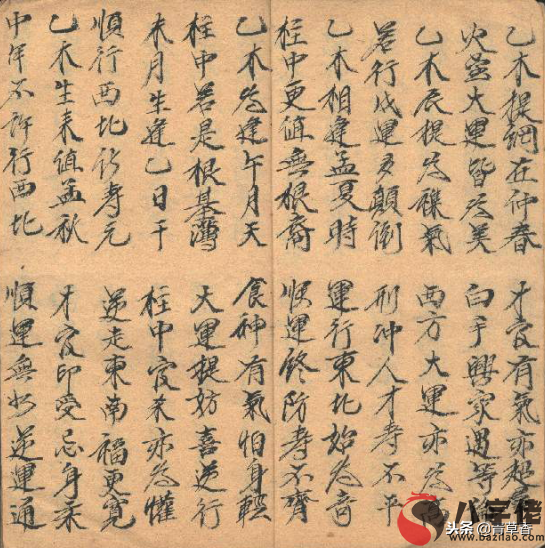 乙木提綱在仲春
才官有氣亦超
火金大運皆为美
白手興家遇等
乙木辰提为襍氣
西方大運亦为
若行戊運多顛倒
刑冲人才寿不平
乙木相逢孟夏時
運行東北始为奇
柱中更值無根裔
順運終防寿不齊
乙木为逢午月天
食神有氣怕身輕
柱中若是根基薄
大運提防喜逆行
未月生逢乙日干
柱中官杀亦为權
順行西北寿元
逆走東南福更寬
乙木生来值孟秋
才官印受忌身柔
中年不許行西北
順運無如逆運通
八字佬
头条 @青草香
www.bazilao.com